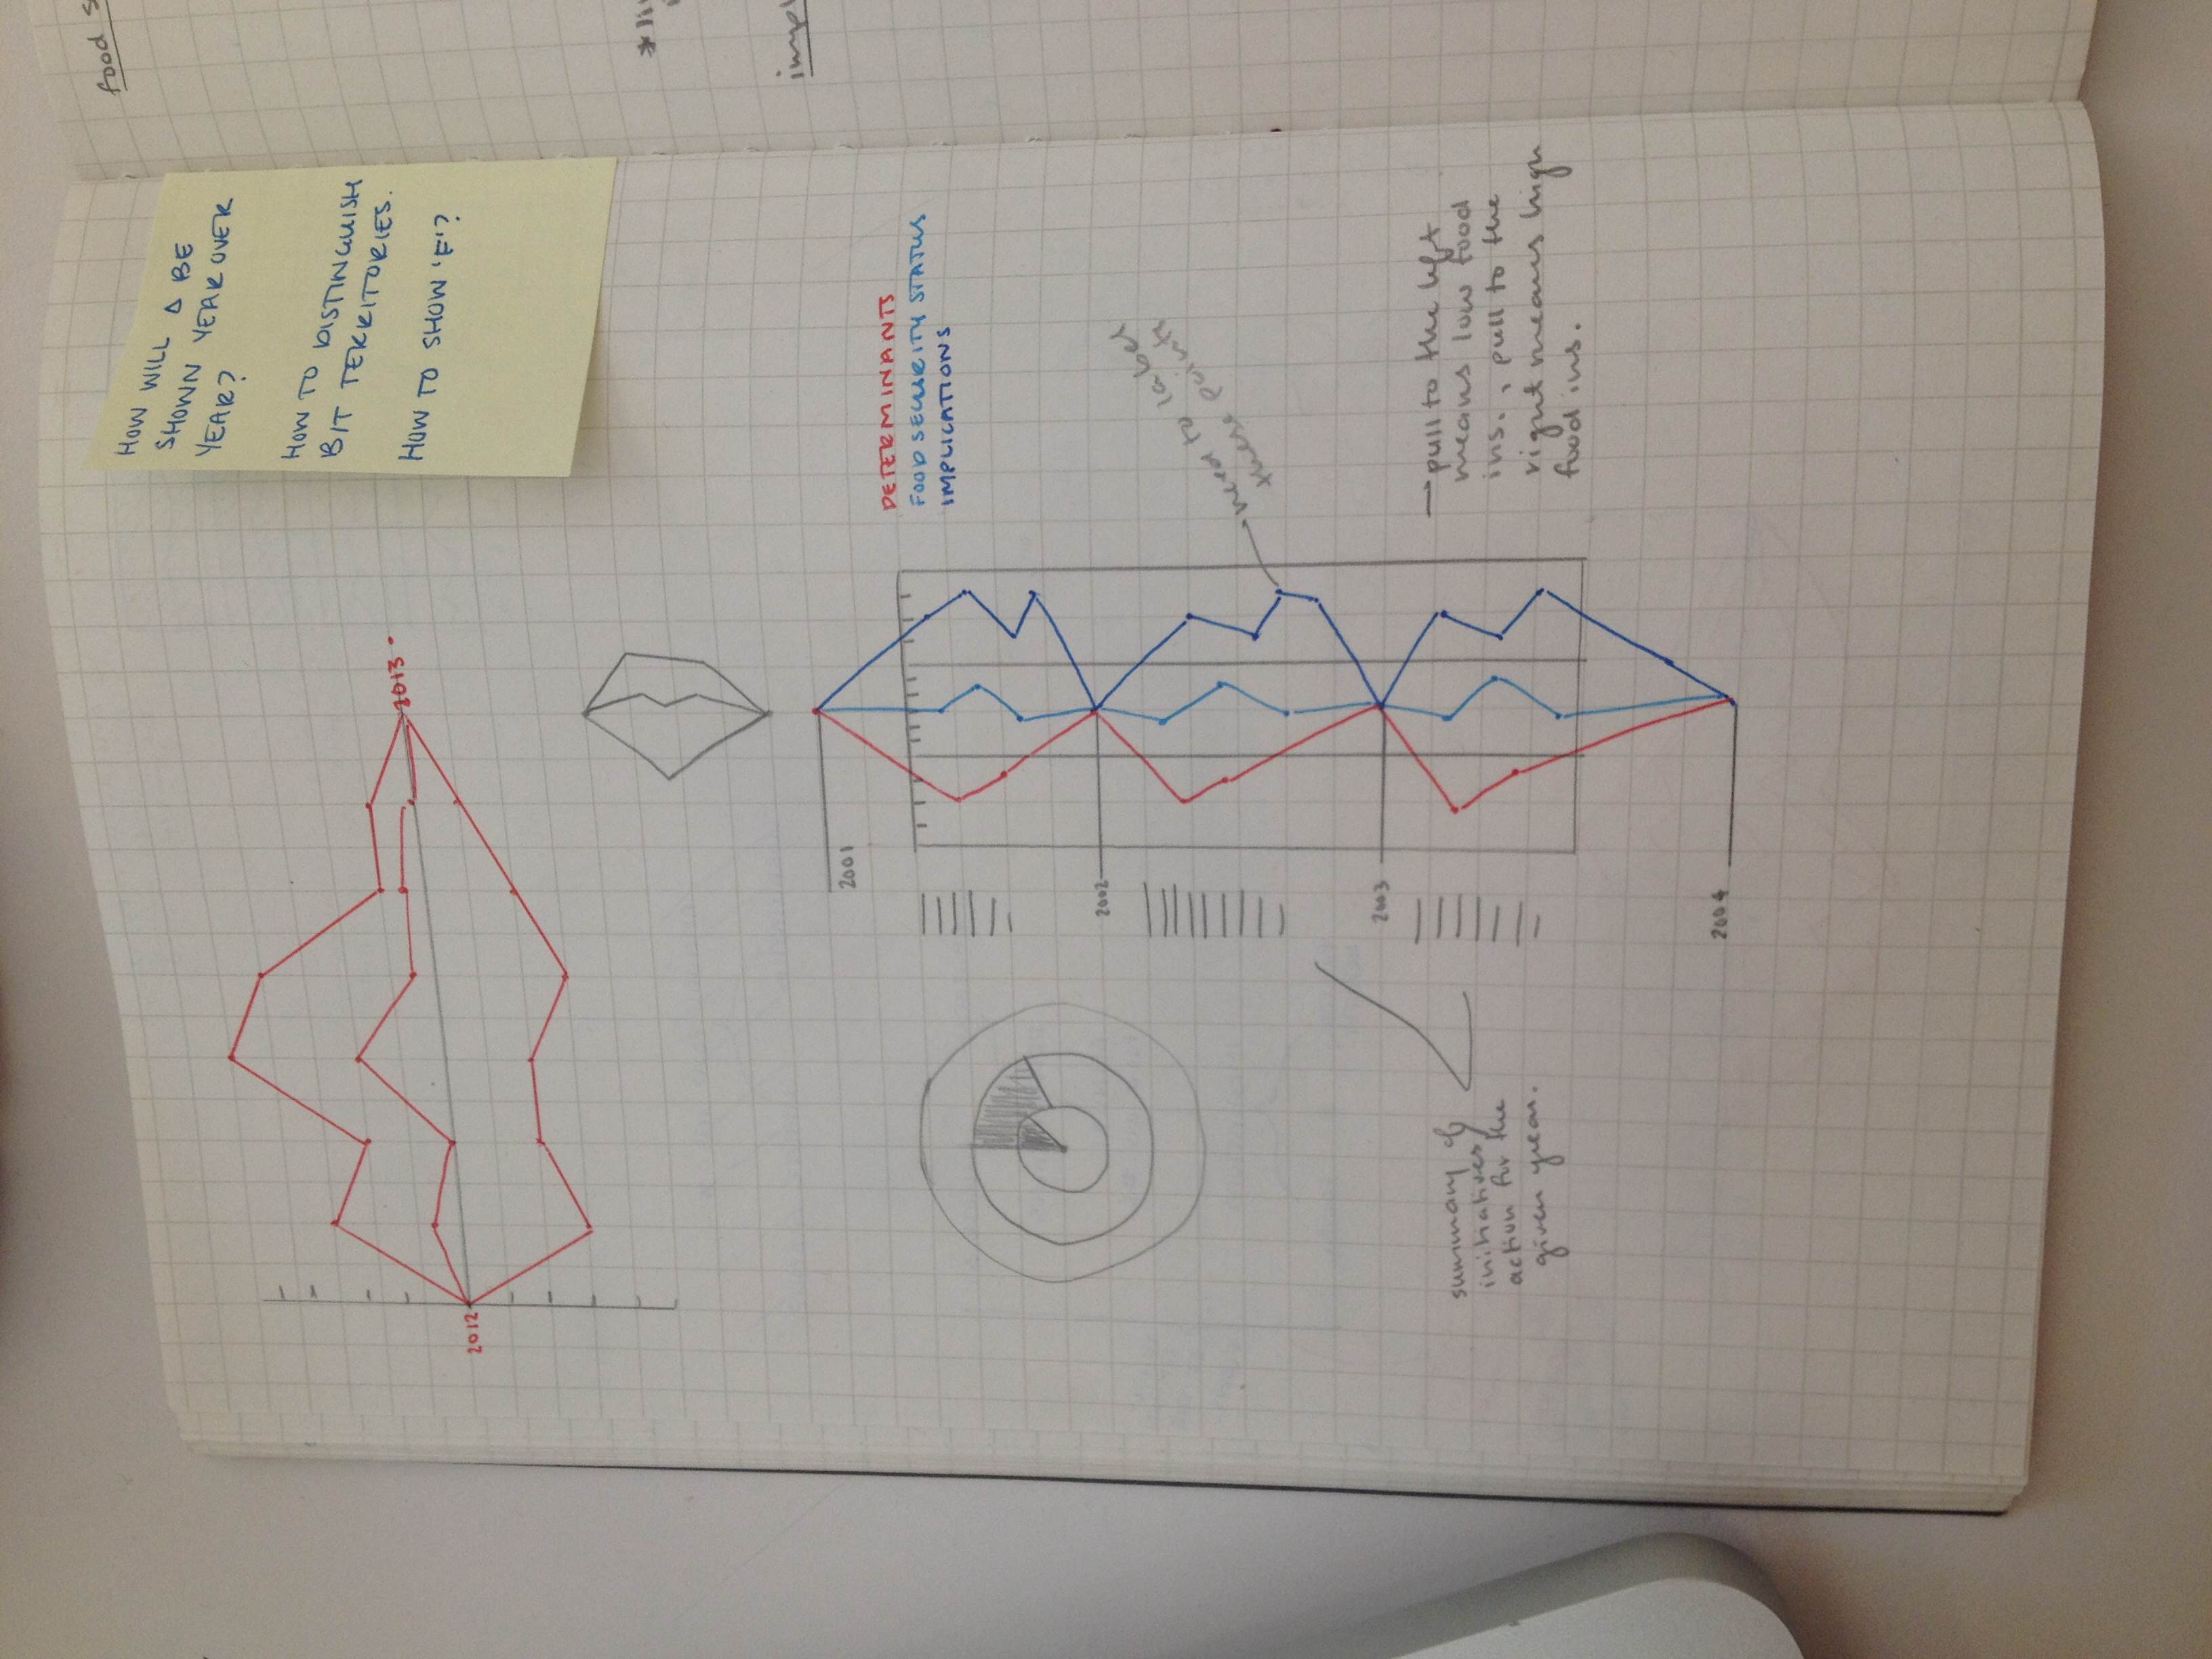 HOW WILL Δ BE
SHOWN YEAR OVER
YEAR?
HOW TO DISTINGUISH
BIT TERRITORIES.
HOW TO SHOW 'F'?
food s
2012
2013
2001
DETERMINANTS
FOOD SECURITY STATUS
IMPLICATIONS
2002
need to label
these points
2003
summary of
initiatives/
action for the
given year.
→pull to the left
means low food
ins., pull to the
right means high
food ins.
2004
* li
impl